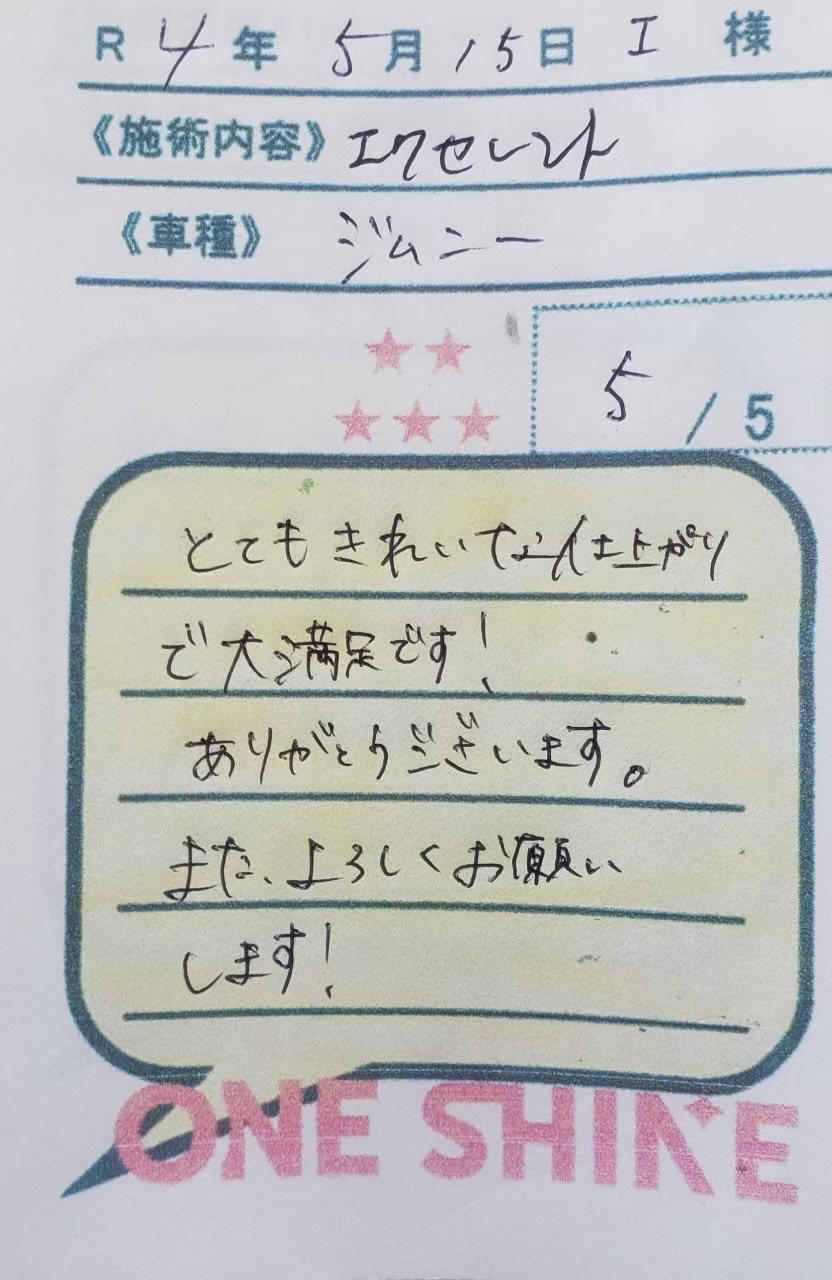 R 4年 5月 15日 I 様
《施術内容》エクセレント
《車種》 ジムニー
5 / 5
とてもきれいな仕上がり
で大満足です!
ありがとうございます。
また、よろしくお願い
します!
ONE SHINE